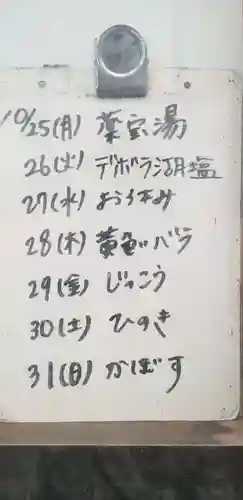 10/25(月) 薬宝湯
26(火) デボラ湖塩
27(水) おうごみ
28(木) 黄色いバラ
29(金) じっこう
30(土) ひのき
31(日) かぼす